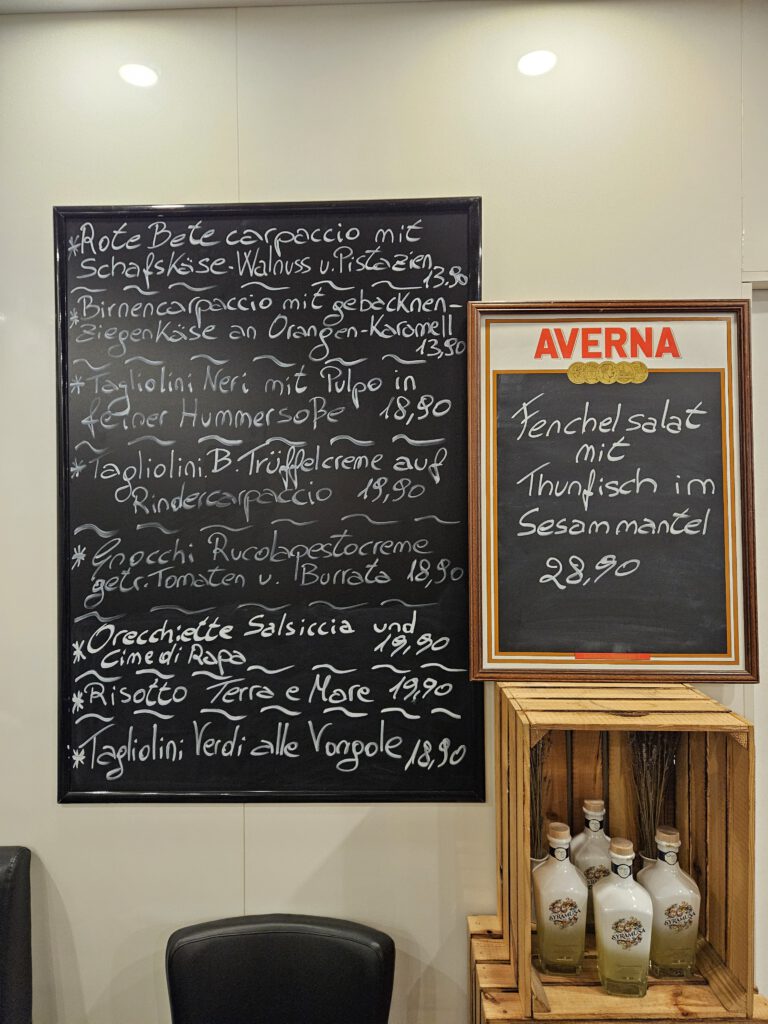 *Rote Bete carpaccio mit
Schafskäse-Walnuss u. Pistazien
13.90
*Birnencarpaccio mit gebacknen-
ziegenkäse an Orangen-Karamell
13,90
*Tagliolini Neri mit Pulpo in
feiner Hummersoße 18,90
*Tagliolini. B. Trüffelcreme auf
Rindercarpaccio 19,90
*Gnocchi Rucolapestocreme
getr. Tomaten u. Burrata 18,90
*Orecchiette Salsiccia und
Cime di Rapa 19,90
*Risotto Terra e Mare 19,90
*Tagliolini Verdi alle Vongole 18,90
AVERNA
Fenchelsalat
mit
Thunfisch im
Sesammantel
28,90
SYRAMUSA
SYRAMUSA
SYRAMUSA